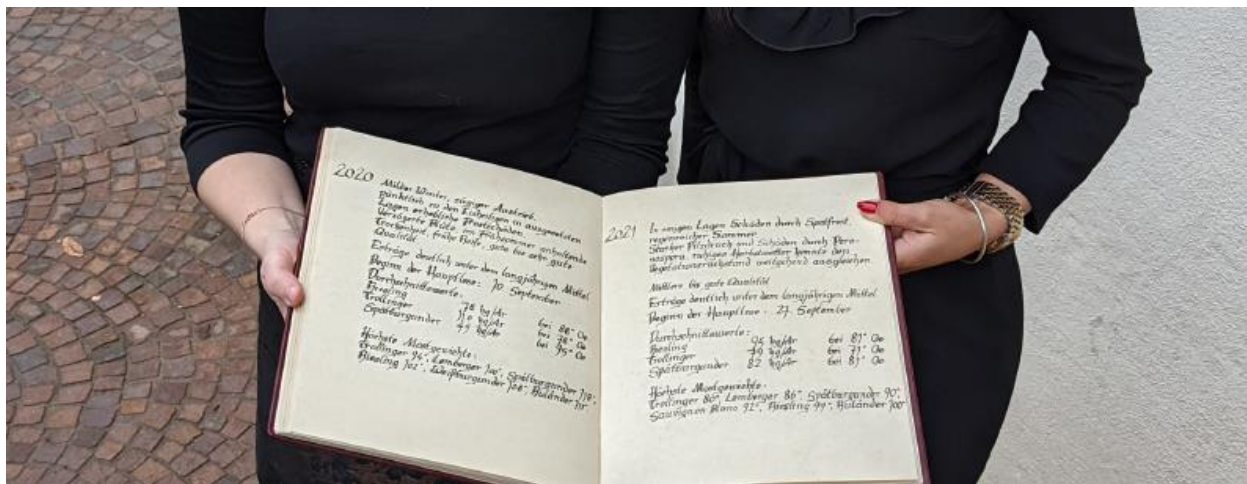 2020
Milder Winter, zügiger Austrieb,
pünktlich zu den Eisheiligen in ausgesetzten
Lagen erhebliche Frostschäden.
Verzögerte Blüte, im Frühsommer anhaltende
Trockenheit, frühe Reife, gute bis sehr gute
Qualität
Erträge deutlich unter dem langjährigen Mittel
Beginn der Hauptlese: 10. September
Durchschnittswerte:
Riesling 78 kg/Ar bei 80° Oe
Trollinger kg/Ar bei 78° Oe
Spätburgunder kg/Ar bei 95° Oe
Höchste Mostgewichte:
Trollinger 94°, Lemberger 100°, Spätburgunder 118°,
Riesling 102°, Weißburgunder 108°, Ruländer
2021
In einigen Lagen Schäden durch Spätfrost,
regenreicher Sommer
Starker Pilzdruck und Schäden durch Pero-
nospora, ruhiges Herbstwetter konnte den
Vegetationsrückstand weitgehend ausgleichen
Mittlere bis gute Qualität
Erträge deutlich unter dem langjährigen Mittel
Beginn der Hauptlese: 27. September
Durchschnittswerte:
Riesling 95 kg/Ar bei 81° Oe
Trollinger kg/Ar bei 71° Oe
Spätburgunder 82 kg/Ar bei 87° Oe
Höchste Mostgewichte:
Trollinger 86°, Lemberger 86°, Spätburgunder 90°,
Sauvignon Blanc 92°, Riesling 99°, Ruländer 100°